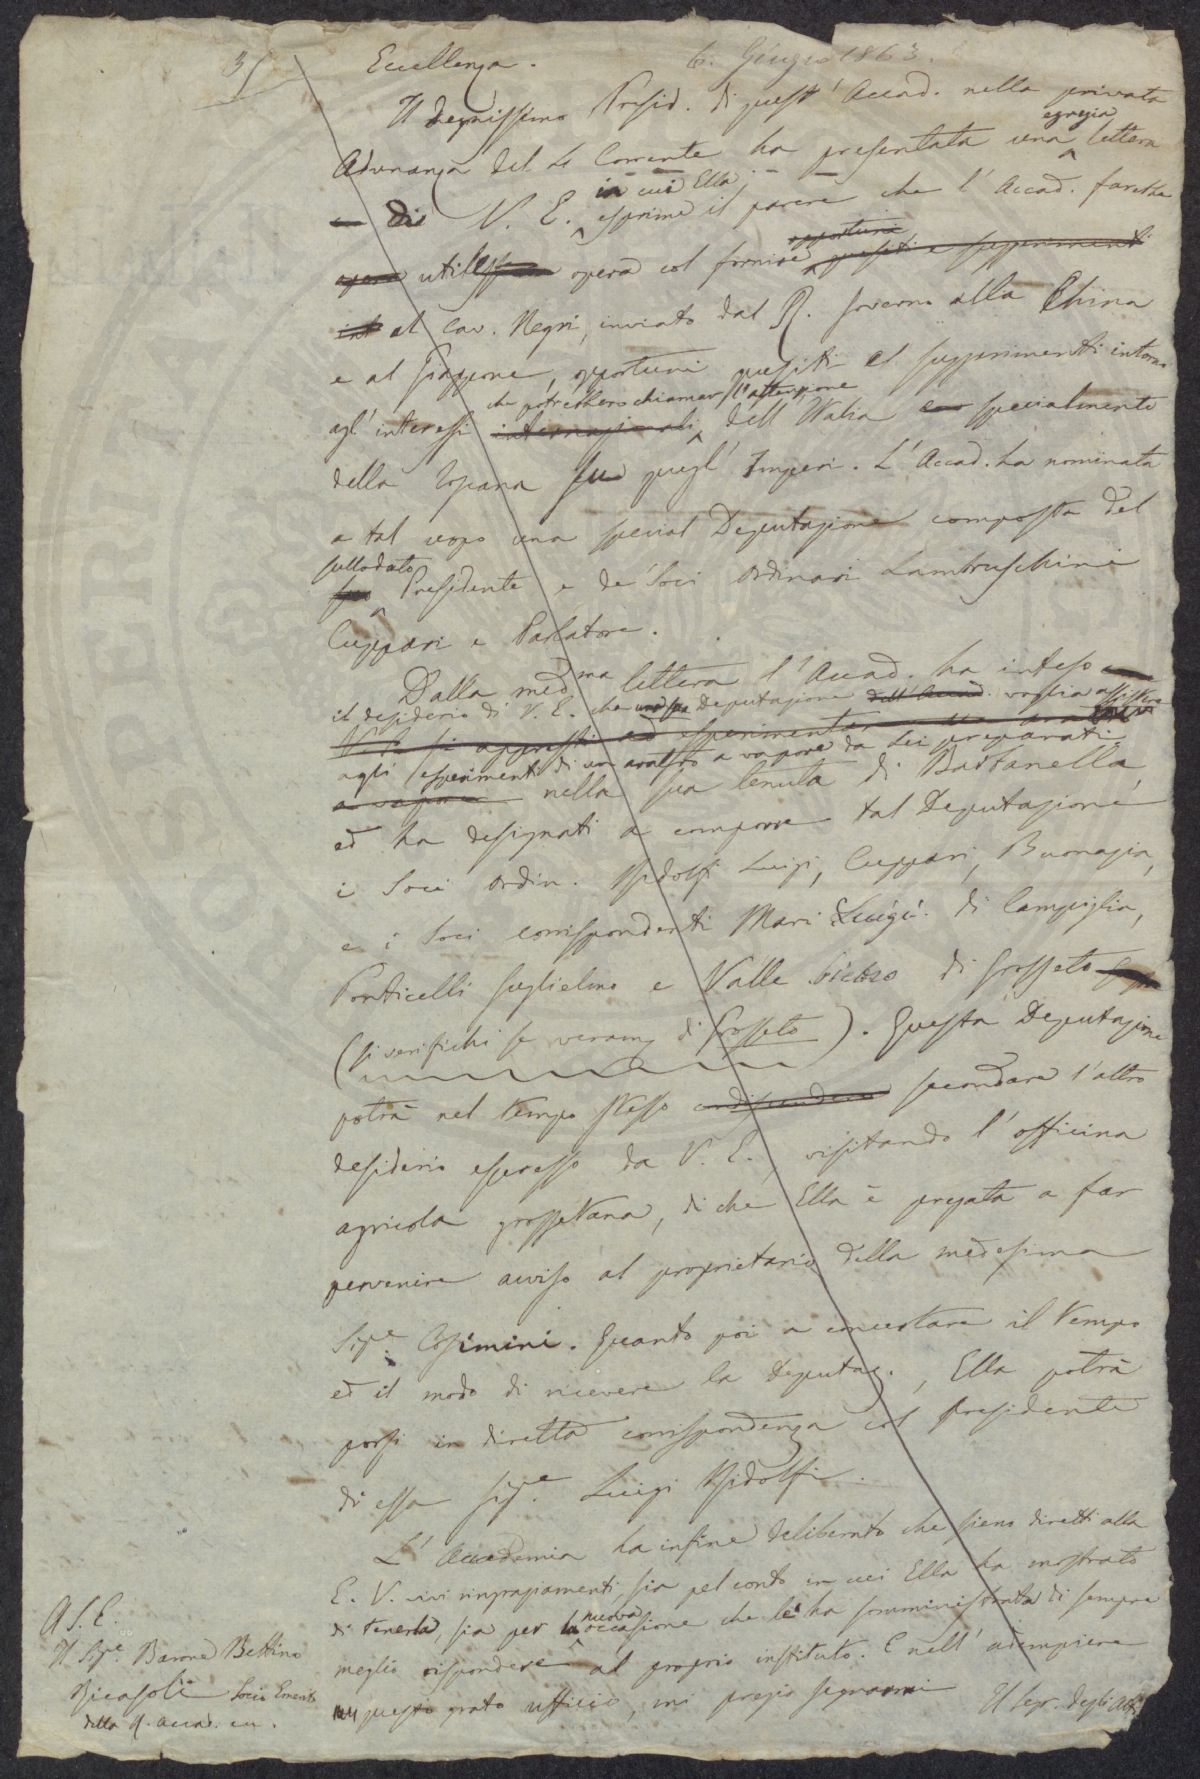 3
Eccellenza. 6. Giugno 1863.
Il degnissimo Presid. di quest'Accad. nella privata
egregia
Adunanza del dì Corrente ha presentata una lettera
in cui Ella
di V. E. esprime il parere che l'Accad. farebbe
opportuni
opera utile opera col fornire quesiti e suggerimenti
int al Cav. Negri, inviato dal R. Governo alla China
e al Giappone, opportuni quesiti et suggerimenti intorno
che potrebbero chiamar l'attenzione
agl'interessi internazionali dell'Italia e specialmente
della Toscana su quegl'Imperi. L'Accad. ha nominata
a tal uopo una special Deputazione composta del
sullodato
suo Presidente e de' Soci ordinari Lambruschini
Cuppari e Parlatore.
Dalla medma lettera l'Accad. ha inteso
il desiderio di V. E. che una sua Deputazione dell'Accad. voglia assistere
V. E. si appresti ad esperimentare
agli esperimenti di un aratro a vapore da Lei preparati
a vapore nella sua tenuta di Barbanella,
ed ha designati a comporre tal Deputazione
i Soci ordin. Ridolfi Luigi, Cuppari, Buonagia,
e i Soci corrispondenti Mari Luigi di Campiglia,
Ponticelli Guglielmo e Valle Pietro di Grosseto
(si verifichi se veram. di Grosseto). Questa Deputazione
potrà nel tempo stesso secondare l'altro
desiderio espresso da V. E. visitando l'officina
agricola grossetana, di che Ella è pregata a far
pervenire avviso al proprietario della medesima
Sigre. Cosimini. Quanto poi a concertare il tempo
ed il modo di ricevere la Deputaz., Ella potrà
porsi in diretta corrispondenza col Presidente
di essa Sigre. Luigi Ridolfi.
L'Accademia ha infine deliberato che sieno diretti alla
E. V. vivi ringraziamenti, sia pel conto in cui Ella ha mostrato
nuova
di tenerla, sia per la occasione che le ha somministrata di sempre
meglio rispondere al proprio instituto. E nell'adempiere
questo grato ufficio, mi pregio segnarmi Il Segr. degli Atti
A S. E.
Il Sigre. Barone Bettino
Ricasoli Socio Emerito
della R. Accad. ec.